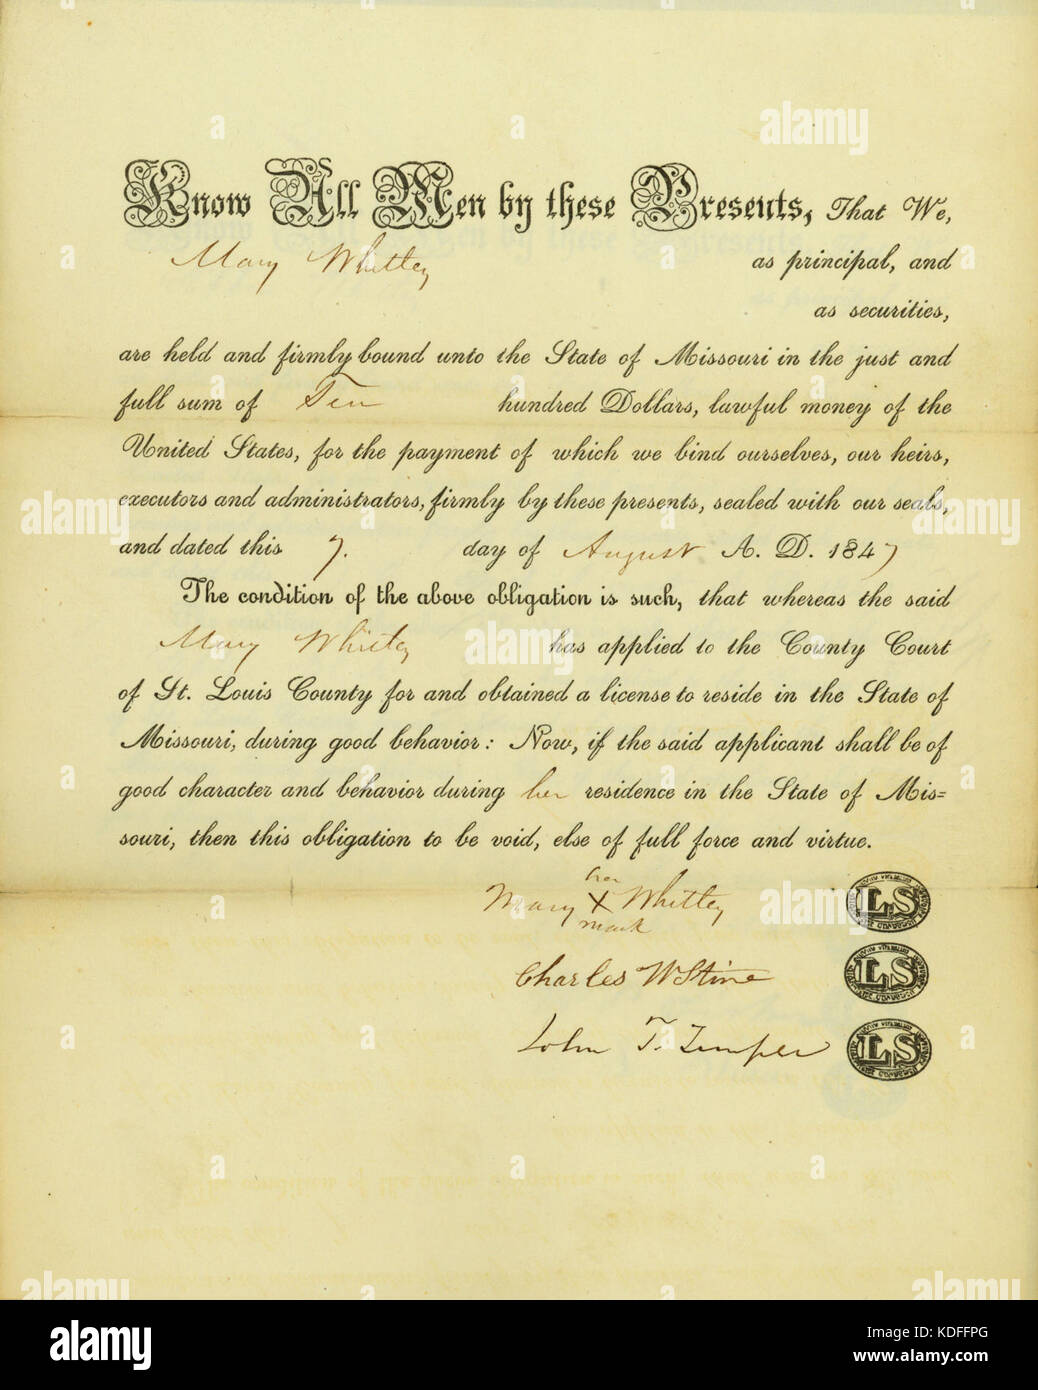 Know All Men by these Presents, That We,
Mary Whitley as principal, and
as securities,
are held and firmly bound unto the State of Missouri in the just and
full sum of Ten hundred Dollars, lawful money of the
United States, for the payment of which we bind ourselves, our heirs,
executors and administrators, firmly by these presents, sealed with our seals,
and dated this 7. day of August A. D. 1847
The condition of the above obligation is such, that whereas the said
Mary Whitley has applied to the County Court
of St. Louis County for and obtained a license to reside in the State of
Missouri, during good behavior: Now, if the said applicant shall be of
good character and behavior during her residence in the State of Mis=
souri, then this obligation to be void, else of full force and virtue.
her
Mary X Whitley LS
mark
Charles W Stine LS
John T. LS
alamy
Image ID: KDFFPG
www.alamy.com